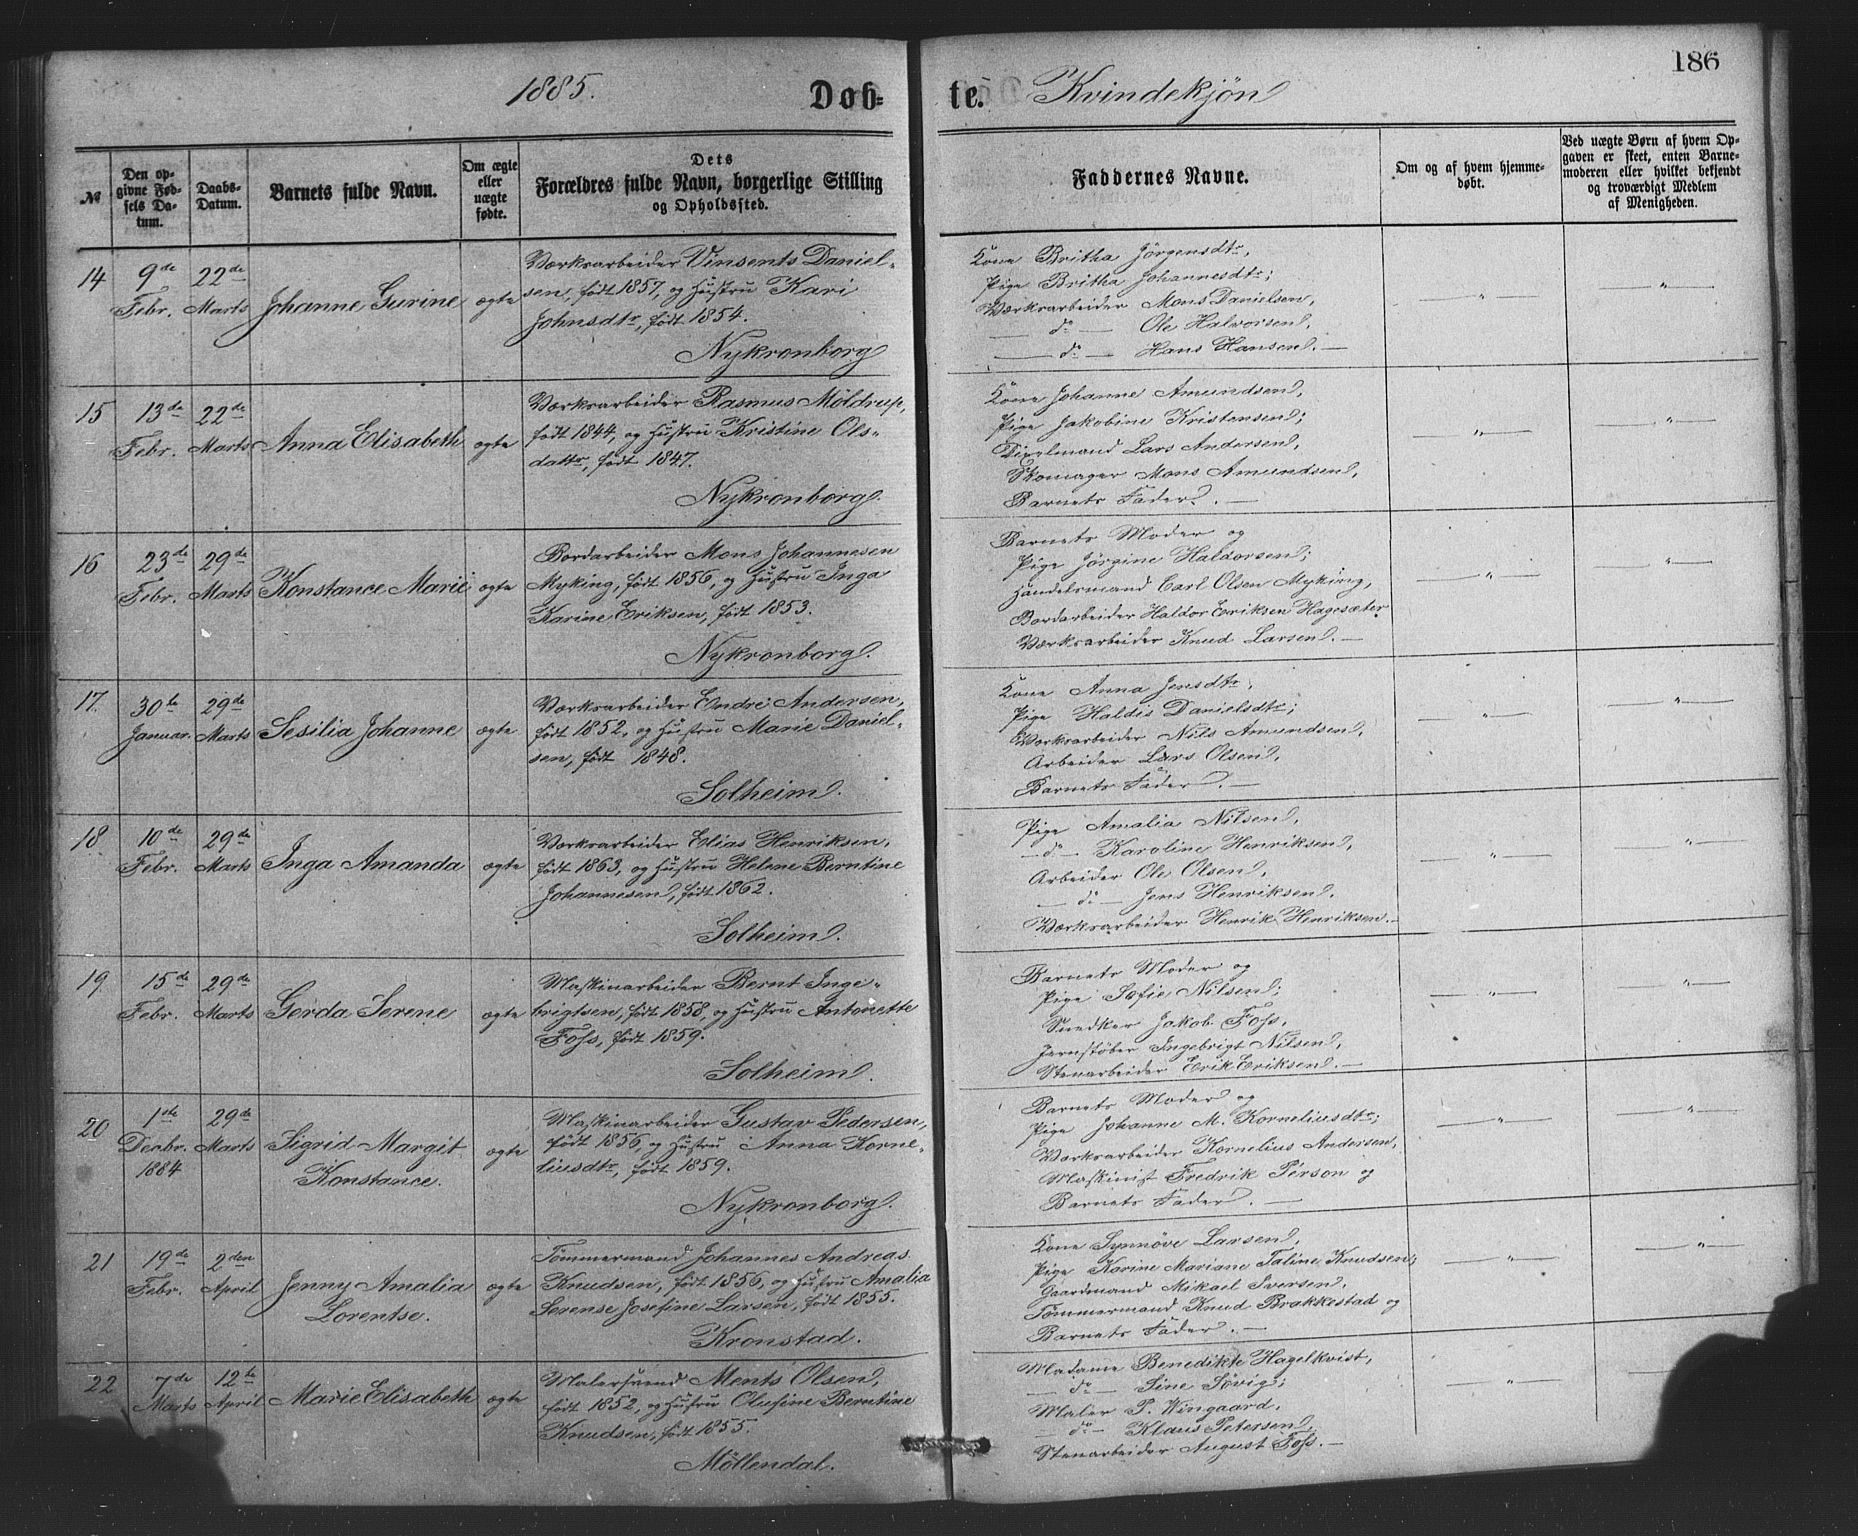 186
1885.
Døb-
te. Kvindekjøn
№
Den op-
givne Fød-
sels Da-
tum.
Daabs-
Datum.
Barnets fulde Navn.
Om ægte
eller
uægte
fødte.
Dets
Forældres fulde Navn, borgerlige Stilling
og Opholdssted.
Faddernes Navne.
Om og af hvem hjemme-
døbt.
Ved uægte Børn af hvem Op-
gaven er skeet, enten Barne-
moderen eller hvilket bekjendt
og troværdigt Medlem
af Menigheden.
14
9de
Febr.
22de
Marts
Johanne Gurine
ægte
Værksarbeider Vinsents Daniel-
sen, født 1857, og Hustru Kari
Johnsdtr, født 1854.
Nykronborg
Kone Britha Jørgensdtr,
Pige Britha Johannesdtr;
Værksarbeider Mons Danielsen,
— do — Ole Halvorsen,
— do — Hans Hansen. —
— " —
— " —
15
13de
Febr.
22de
Marts
Anna Elisabeth
ægte
Værksarbeider Rasmus Møldrup,
født 1844, og Hustru Kristine Ols-
dattr, født 1847.
Nykronborg.
Kone Johanne Amundsen,
Pige Jakobine Kristensen;
Lars Andersen,
Skomager Mons Amundsen,
Barnets Fader. —
— " —
— " —
16
23de
Febr.
29de
Marts
Konstance Marie
ægte
Bordarbeider Mons Johannesen
Myking, født 1856, og Hustru Inga
Karine Eriksen, født 1853.
Nykronborg.
Barnets Moder og
Pige Jørgine Haldorsen;
Handelsmand Carl Olsen Myking,
Bordarbeider Haldor Eriksen Hagesæter
Værksarbeider Knud Larsen. —
— " —
— " —
17.
30te
Januar.
29de
Marts
Sesilia Johanne
ægte
Værksarbeider Endre Andersen,
født 1852, og Hustru Marie Daniel-
sen, født 1848.
Solheim.
Kone Anna Jensdtr,
Pige Haldis Danielsdtr;
Værksarbeider Nils Amundsen,
Arbeider Lars Olsen,
Barnets Fader. —
— " —
— " —
18
10de
Febr.
29de
Marts
Inga Amanda
ægte
Værksarbeider Elias Henriksen,
født 1863, og Hustru Helene Berntine
Johannesen, født 1862.
Solheim.
Pige Amalia Nilsen,
— do — Karoline Henriksen,
Arbeider Ole Olsen,
— do — Jens Henriksen,
Værksarbeider Henrik Henriksen. —
— " —
— " —
19
15de
Febr.
29de
Marts
Gerda Serene
ægte
Maskinarbeider Bernt Inge-
brigtsen, født 1858, og Hustru Antonette
Foss, født 1859.
Solheim.
Barnets Moder og
Pige Sofie Nilsen;
Snedker Jakob Foss,
Jernstøber Ingebrigt Nilsen,
Stenarbeider Erik Eriksen. —
— " —
— " —
20
1ste
Decbr.
1884
29de
Marts
Sigrid Margit
Konstance.
ægte
Maskinarbeider Gustav Pedersen,
født 1856, og Hustru Anna Korne-
liusdtr, født 1859.
Nykronborg.
Barnets Moder og
Pige Johanne M. Korneliusdtr;
Værksarbeider Kornelius Andersen,
Maskinist Fredrik Person og
Barnets Fader. —
— " —
— " —
21
19de
Febr.
2den
April
Jenny Amalia
Lorentse.
ægte
Tømmermand Johannes Andreas
Knudsen, født 1856, og Hustru Amalia
Serense Josefine Larsen, født 1855.
Kronstad.
Kone Synnøve Larsen,
Pige Karine Mariane Taline Knudsen;
Gaardmand Mikael Iversen,
Tømmermand Knud Brakkestad og
Barnets Fader. —
— " —
— " —
22
7de
Marts
12te
April
Marie Elisabeth
ægte
Malersvend Ments Olsen,
født 1852, og Hustru Olufine Berntine
Knudsen, født 1855.
Møllendal.
Madame Benedikte Hagelkvist,
— do — Sine Sørig;
Maler P. Wingaard,
— do — Klaus Petersen,
Stenarbeider August Foss. —
— " —